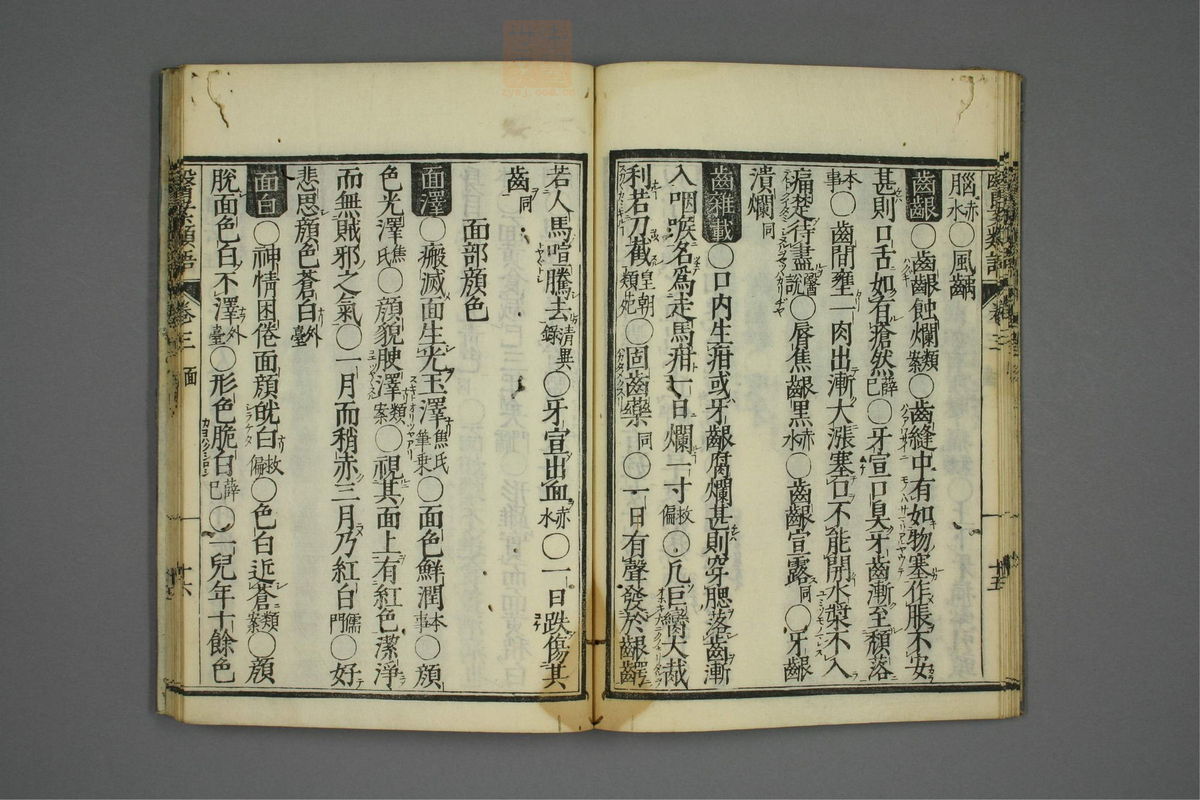 腦赤水〇風齲
齒齦〇齒齦蝕爛類案〇齒縫中有如物塞作脹不安
甚則口舌如有瘡然薛已〇牙宣口臭牙齒漸至頹落
本事〇齒間壅一肉出漸大漲塞口不能開水漿不入
痛楚待盡醫說〇唇焦齦黑赤水〇齒齦宣露同〇牙齦
潰爛同
齒雜載〇口內生疳或牙齦腐爛甚則穿腮落齒漸
入咽喉名為走馬疳一日爛一寸救偏〇凡巨臠大胾
利若刀截皇朝類苑〇固齒藥同〇一日有聲發於齦齶
醫案類語 卷三 十五
若人馬喧騰去清異錄〇牙宣出血赤水〇一日跌傷其
齒同
面部顏色
面澤〇瘢滅面生光玉澤焦氏筆乗〇面色鮮潤本事〇顏
色光澤焦氏〇顏貌腴澤類案〇視其面上有紅色潔淨
而無賊邪之氣〇一月而稍赤三月乃紅白儒門〇好
悲思顏色蒼白外臺
面白〇神情困倦面顏㿠白救偏〇色白近蒼類案〇顏
脫面色白不澤外臺〇形色脆白薛已〇一兒年十餘色
醫案類語 卷三 面 十六